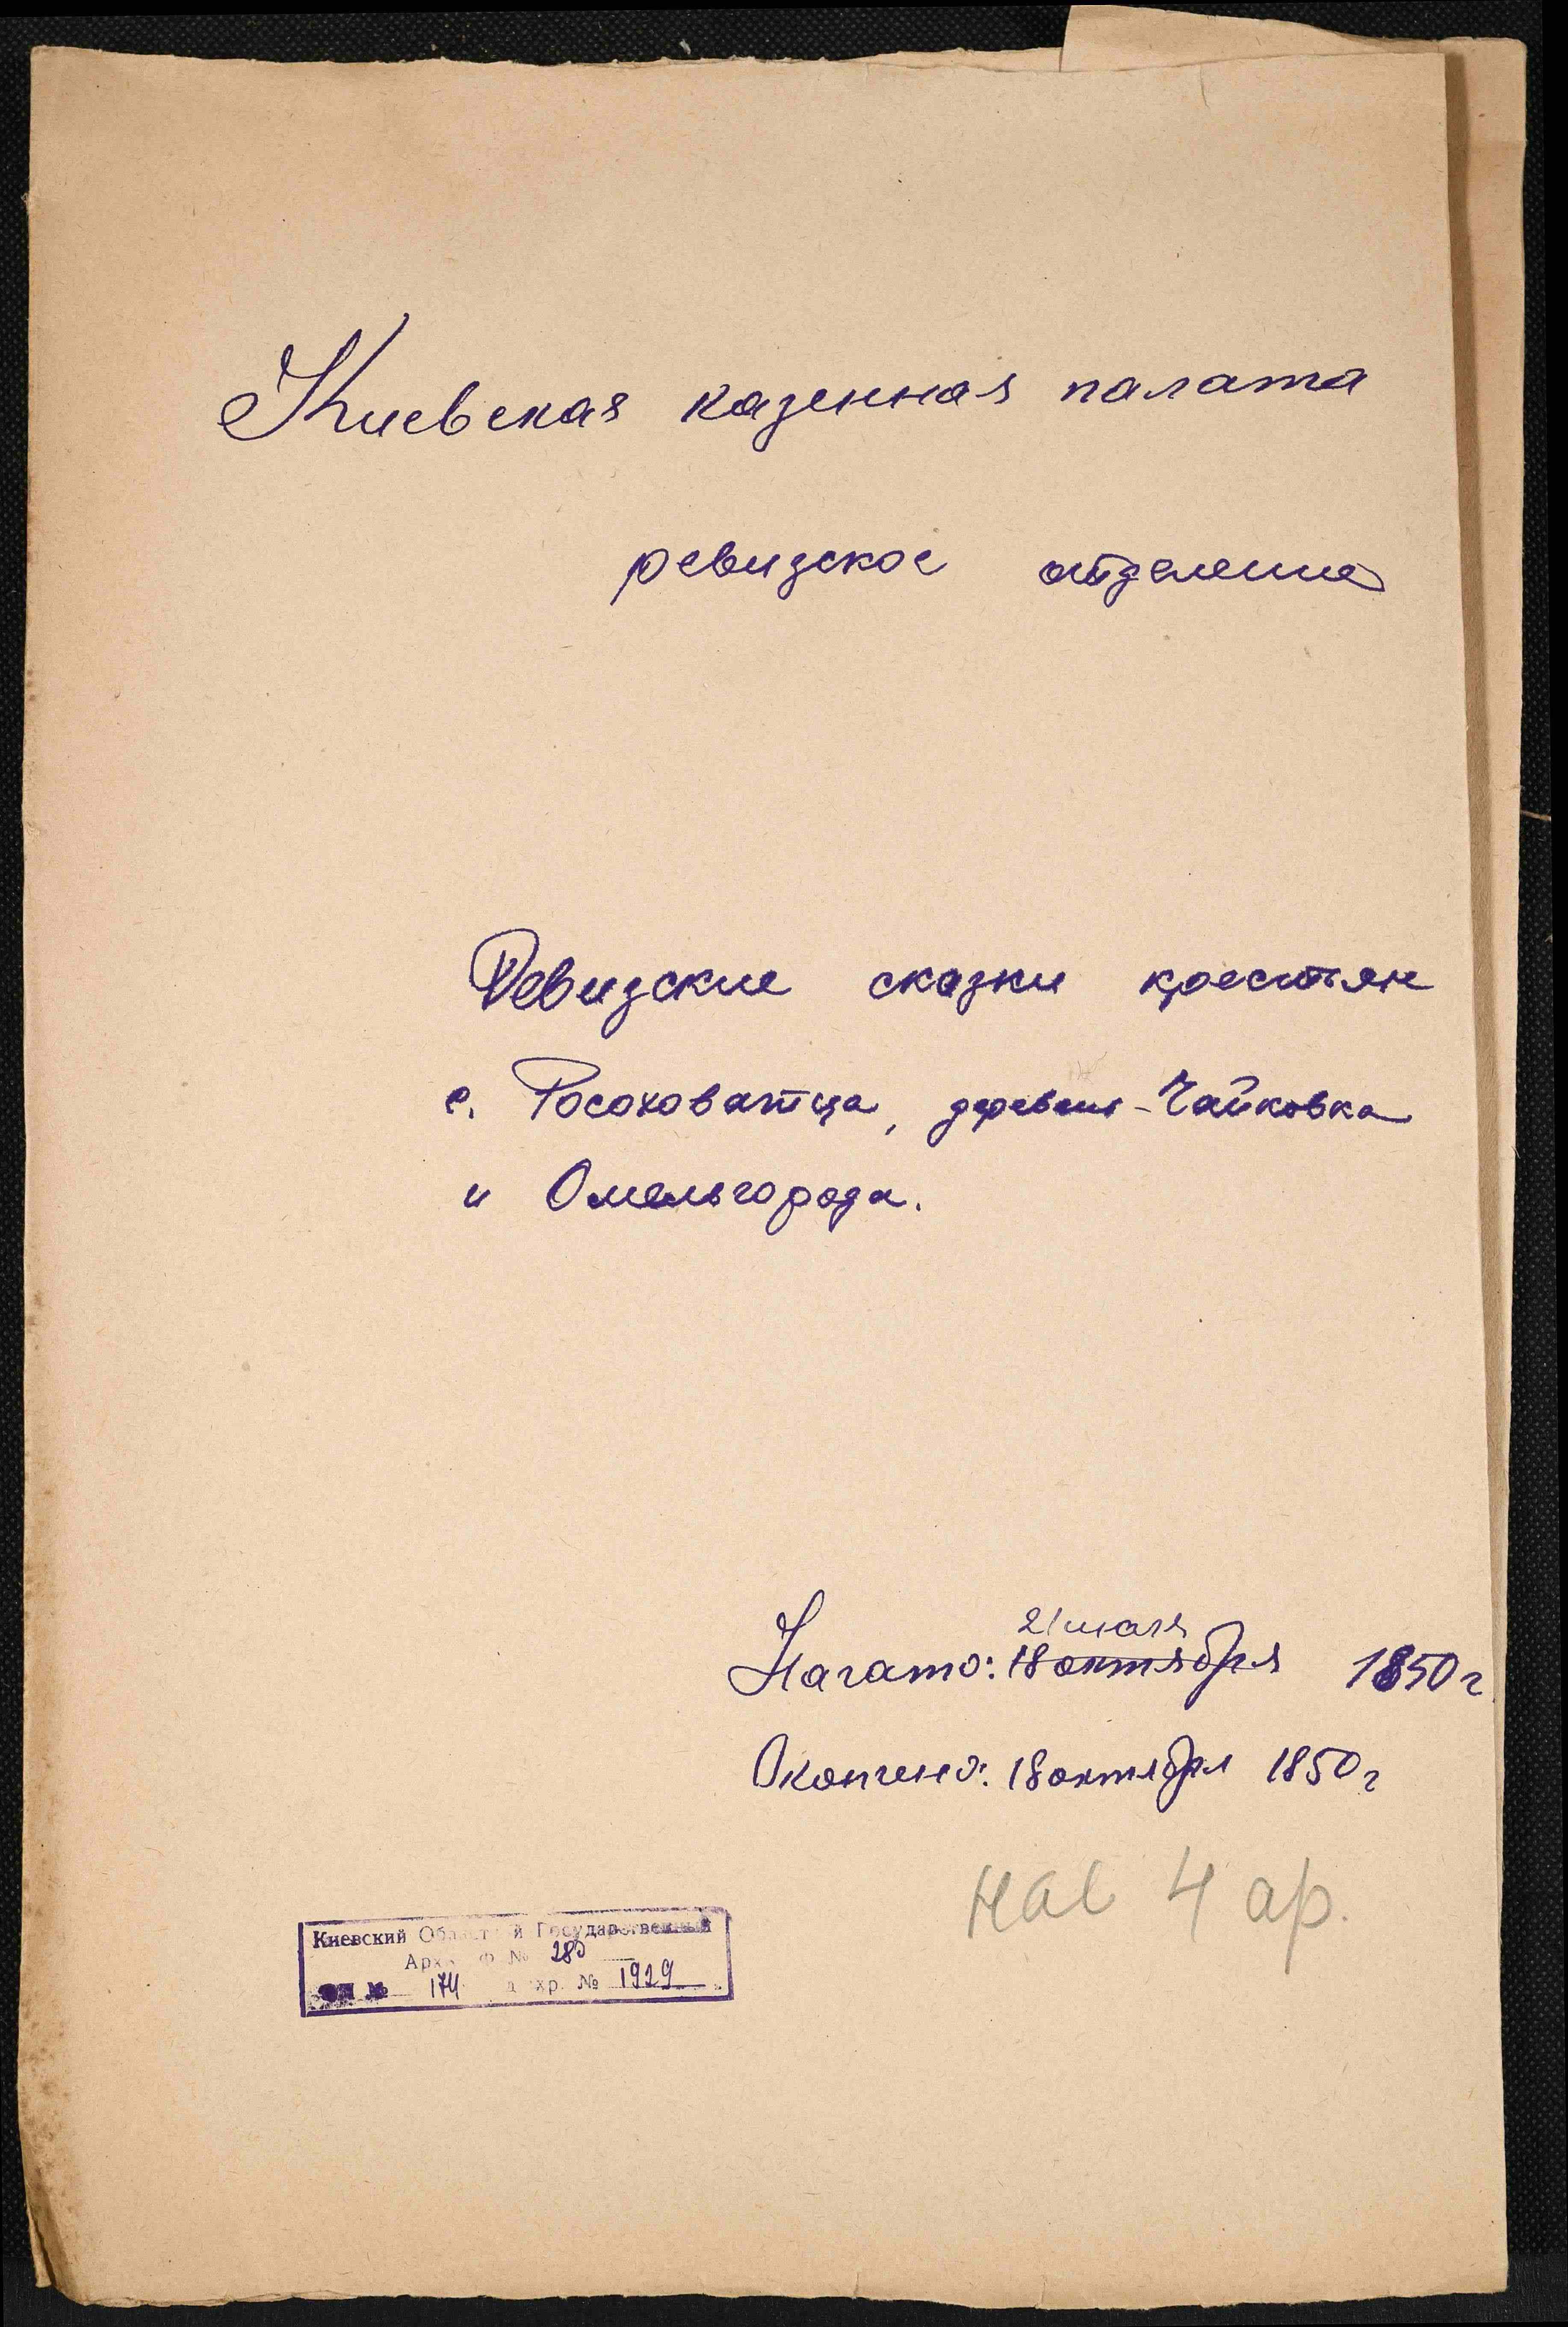 Киевская казенная палата
ревизское отделение
Ревизские сказки крестьян
с. Росоховатца, деревень - Чайковка
и Омельгорода.
21 мая
Начато: 18 октября 1850 г
Окончено: 18 октября 1850 г
на 4 ар.
Киевский Областной Государственный
Архив Ф № 280
оп № 174 ед. хр. № 1929